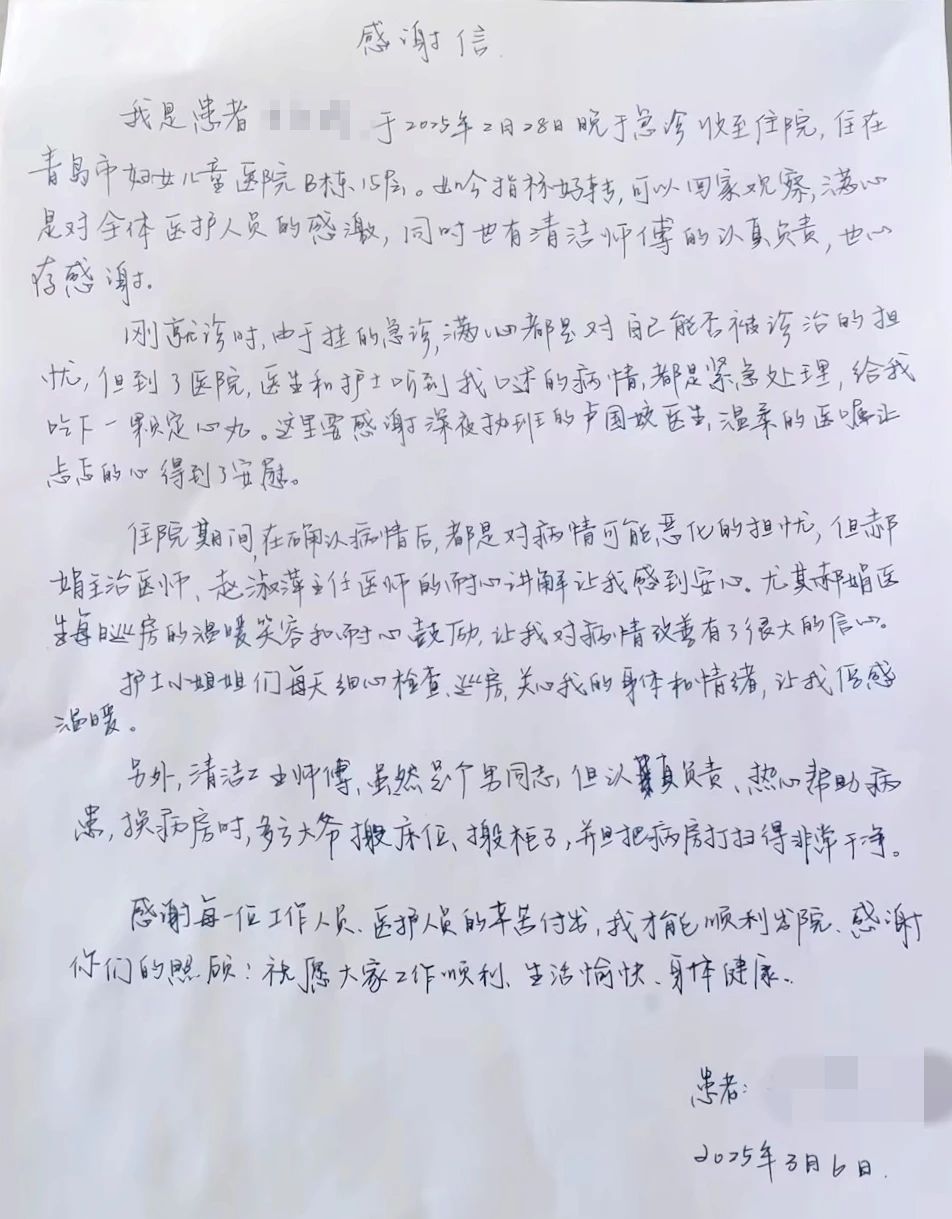 感谢信
我是患者 于2025年2月28日晚于急诊收至住院,住在
青岛市妇女儿童医院B栋15层。如今指标好转,可以回家观察,满心
是对全体医护人员的感激,同时也有清洁师傅的认真负责,也心
存感谢.
刚就诊时,由于挂的急诊,满心都是对自己能否被诊治的担
忧,但到了医院,医生和护士听到我口述的病情,都是紧急处理,给我
吃下一颗定心丸。这里要感谢深夜执班的卢国姣医生,温柔的医嘱让
忐忑的心得到了安慰。
住院期间,在确认病情后,都是对病情可能恶化的担忧,但郝
娟主治医师、赵淑萍主任医师的耐心讲解让我感到安心。尤其郝娟医
生每日巡房的温暖笑容和耐心鼓励,让我对病情改善有了很大的信心。
护士小姐姐们每天细心检查、巡房,关心我的身体和情绪,让我倍感
温暖。
另外,清洁工 师傅,虽然是个男同志,但认真负责、热心帮助病
患,换病房时,多亏大爷搬床位、搬柜子,并且把病房打扫得非常干净。
感谢每一位工作人员、医护人员的辛苦付出,我才能顺利出院、感谢
你们的照顾!祝愿大家工作顺利、生活愉快、身体健康.
患者:
2025年3月6日.